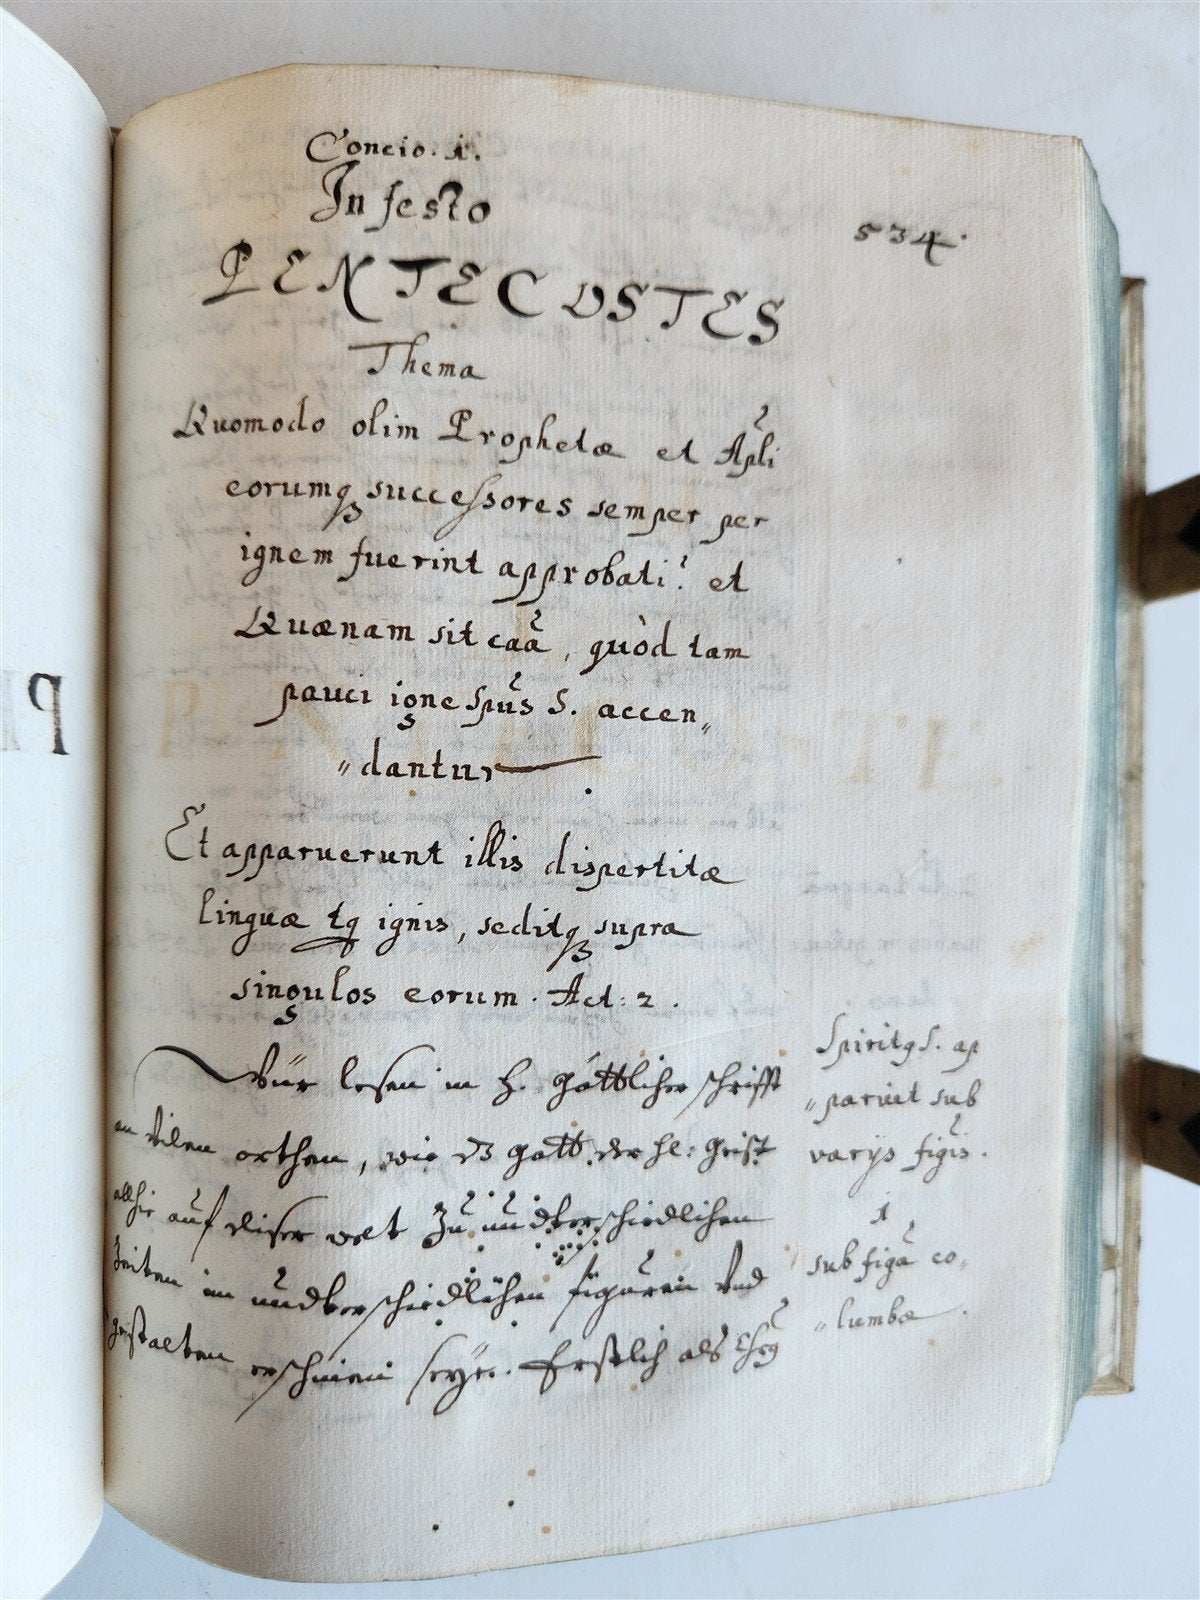 Concio. 1.
In festo
534.
PENTECOSTES
Thema
Quomodo olim Prophetæ et Apli
eorumq successores semper per
ignem fuerint approbati? et
Quænam sit caã, quòd tam
pauci igne Spũs S. accen„
„dantur
Et apparuerunt illis dispertitæ
linguæ tq ignis, seditq supra
singulos eorum. Act: 2.
Wür lesen in H. Göttlicher schrifft
an vilen orthen, wie dz Gott der hl: Geist
allhie auf diser welt zu underschiedlichen
Zeiten in underschiedlichen figuren und
gestalten erschinen seye. Erstlich als
Spiritq S. ap
„paruit sub
varijs figis.
1
sub figa co„
„lumbæ.